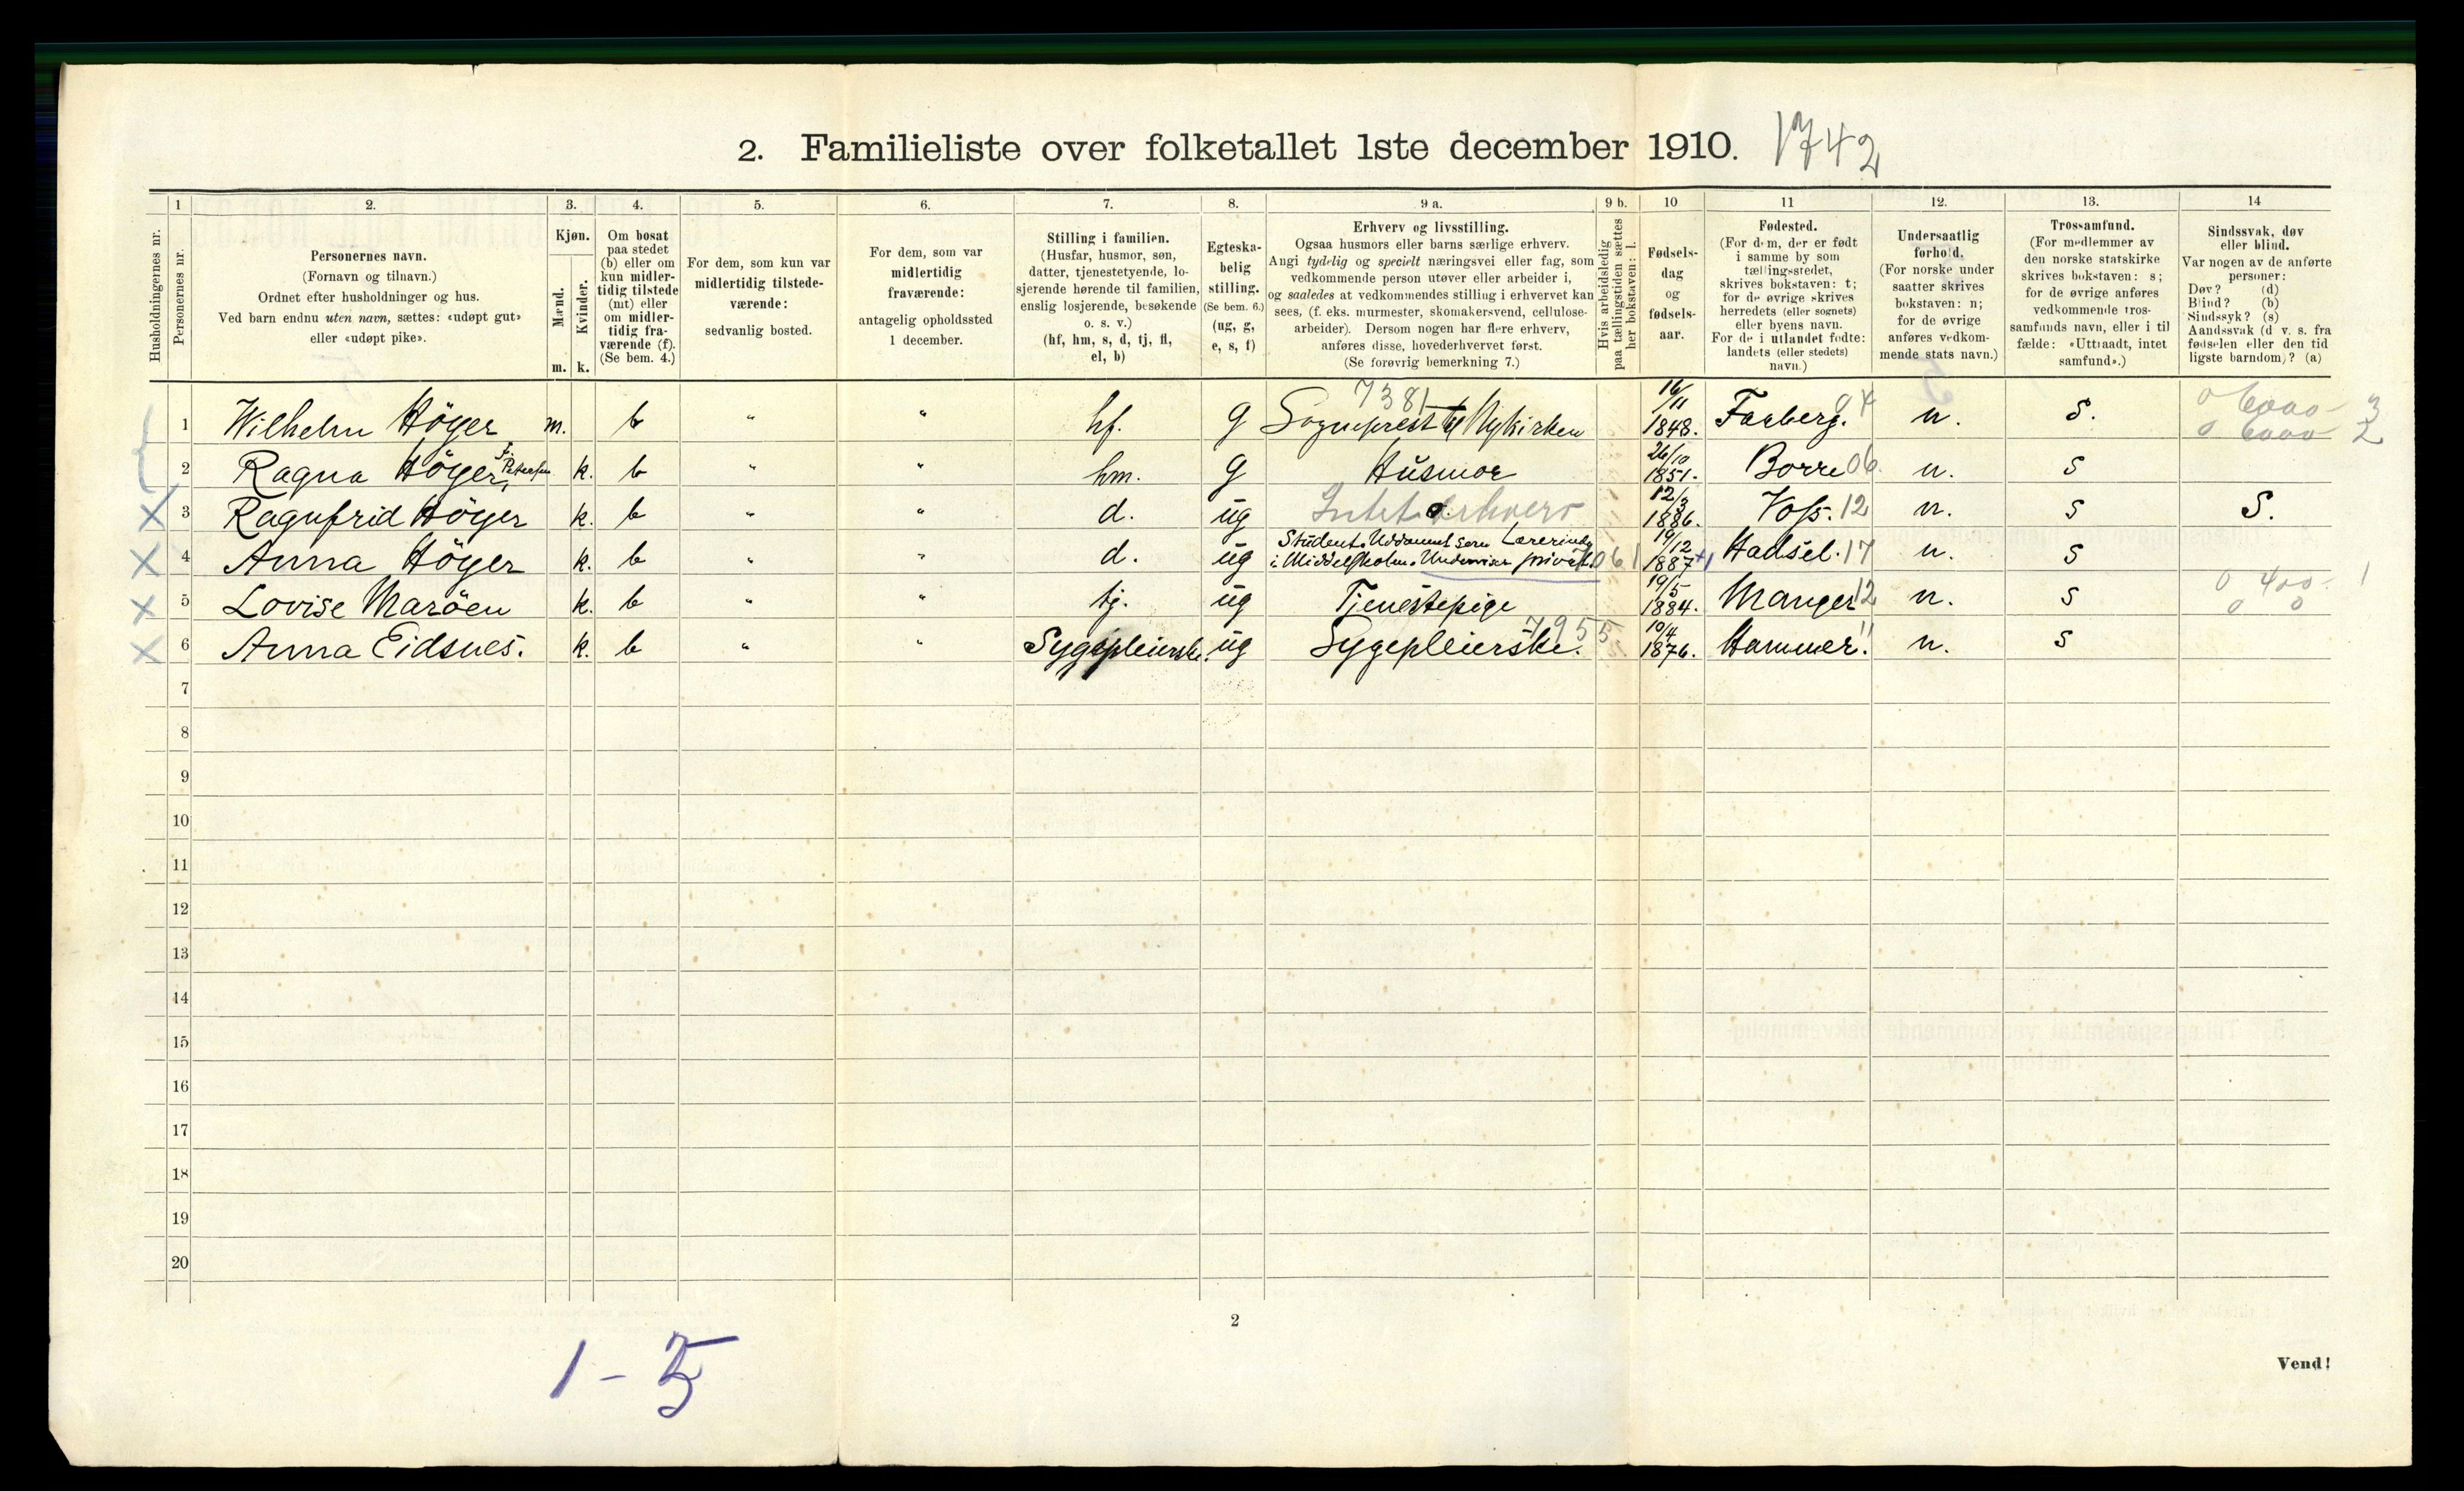 2. Familieliste over folketallet 1ste december 1910. 1742
Husholdningernes nr.
1 Personernes nr.
2. Personernes navn.
(Fornavn og tilnavn.)
Ordnet efter husholdninger og hus.
Ved barn endnu uten navn, sættes: «udøpt gut»
eller «udøpt pike».
3. Kjøn.
Mænd. Kvinder.
m. k.
4. Om bosat
paa stedet
(b) eller om
kun midler-
tidig tilstede
(mt) eller
om midler-
tidig fra-
værende (f).
(Se bem. 4.)
5. For dem, som kun var
midlertidig tilstede-
værende:
sedvanlig bosted.
6. For dem, som var
midlertidig
fraværende:
antagelig opholdssted
1 december.
7. Stilling i familien.
(Husfar, husmor, søn,
datter, tjenestetyende, lo-
sjerende hørende til familien,
enslig losjerende, besøkende
o. s. v.)
(hf, hm, s, d, tj, fl,
el, b)
8. Egteska-
belig
stilling.
(Se bem. 6.)
(ug, g,
e, s, f)
9 a. Erhverv og livsstilling.
Ogsaa husmors eller barns særlige erhverv.
Angi tydelig og specielt næringsvei eller fag, som
vedkommende person utøver eller arbeider i,
og saaledes at vedkommendes stilling i erhvervet kan
sees, (f. eks. murmester, skomakersvend, cellulose-
arbeider). Dersom nogen har flere erhverv,
anføres disse, hovederhvervet først.
(Se forøvrig bemerkning 7.)
9 b. Hvis arbeidsledig
paa tællingstiden sættes
her bokstaven: l.
10 Fødsels-
dag
og
fødsels-
aar.
11 Fødested.
(For dem, der er født
i samme by som
tællingsstedet,
skrives bokstaven: t;
for de øvrige skrives
herredets (eller sognets)
eller byens navn.
For de i utlandet fødte:
landets (eller stedets)
navn.)
12. Undersaatlig
forhold.
(For norske under
saatter skrives
bokstaven: n;
for de øvrige
anføres vedkom-
mende stats navn.)
13. Trossamfund.
(For medlemmer av
den norske statskirke
skrives bokstaven: s;
for de øvrige anføres
vedkommende tros-
samfunds navn, eller i til
fælde: «Uttraadt, intet
samfund».)
14 Sindssvak, døv
eller blind.
Var nogen av de anførte
personer:
Døv? (d)
Blind? (b)
Sindssyk? (s)
Aandssvak (d v. s. fra
fødselen eller den tid
ligste barndom)? (a)
1 Wilhelm Höyer m. b " " hf. g Sogneprest til Nykirken 7381 16/11 1848. Faaberg. 04 n. S. 0 6000- 3 0 6000 2
2 Ragna Höyer, f. Petersen k. b " " hm. g Husmor 26/10 1851. Borre 06 n. s
3 Ragnfrid Höyer k. b " " d. ug Intet erhverv 12/3 1886. Voss. 12 n. s S.
4 Anna Höyer k. b " " d. ug Student. Uddannet som Lærerinde
i Middelskolen. Underviser privat. 19/12 1887 +1 Hadsel. 17 n. s
5 Lovise Maröen k. b " " tj. ug Tjenestepige 19/5 1884. Manger 12 n. s 0 400- 1 0 0
6 Anna Eidsnes. k. b " " Sygepleierske. ug Sygepleierske. 7955 10/4 1876. Hammer. 11 n. s
7
8
9
10
11
12
13
14
15
16
17
18
19
20
2
1 - 5
Vend!